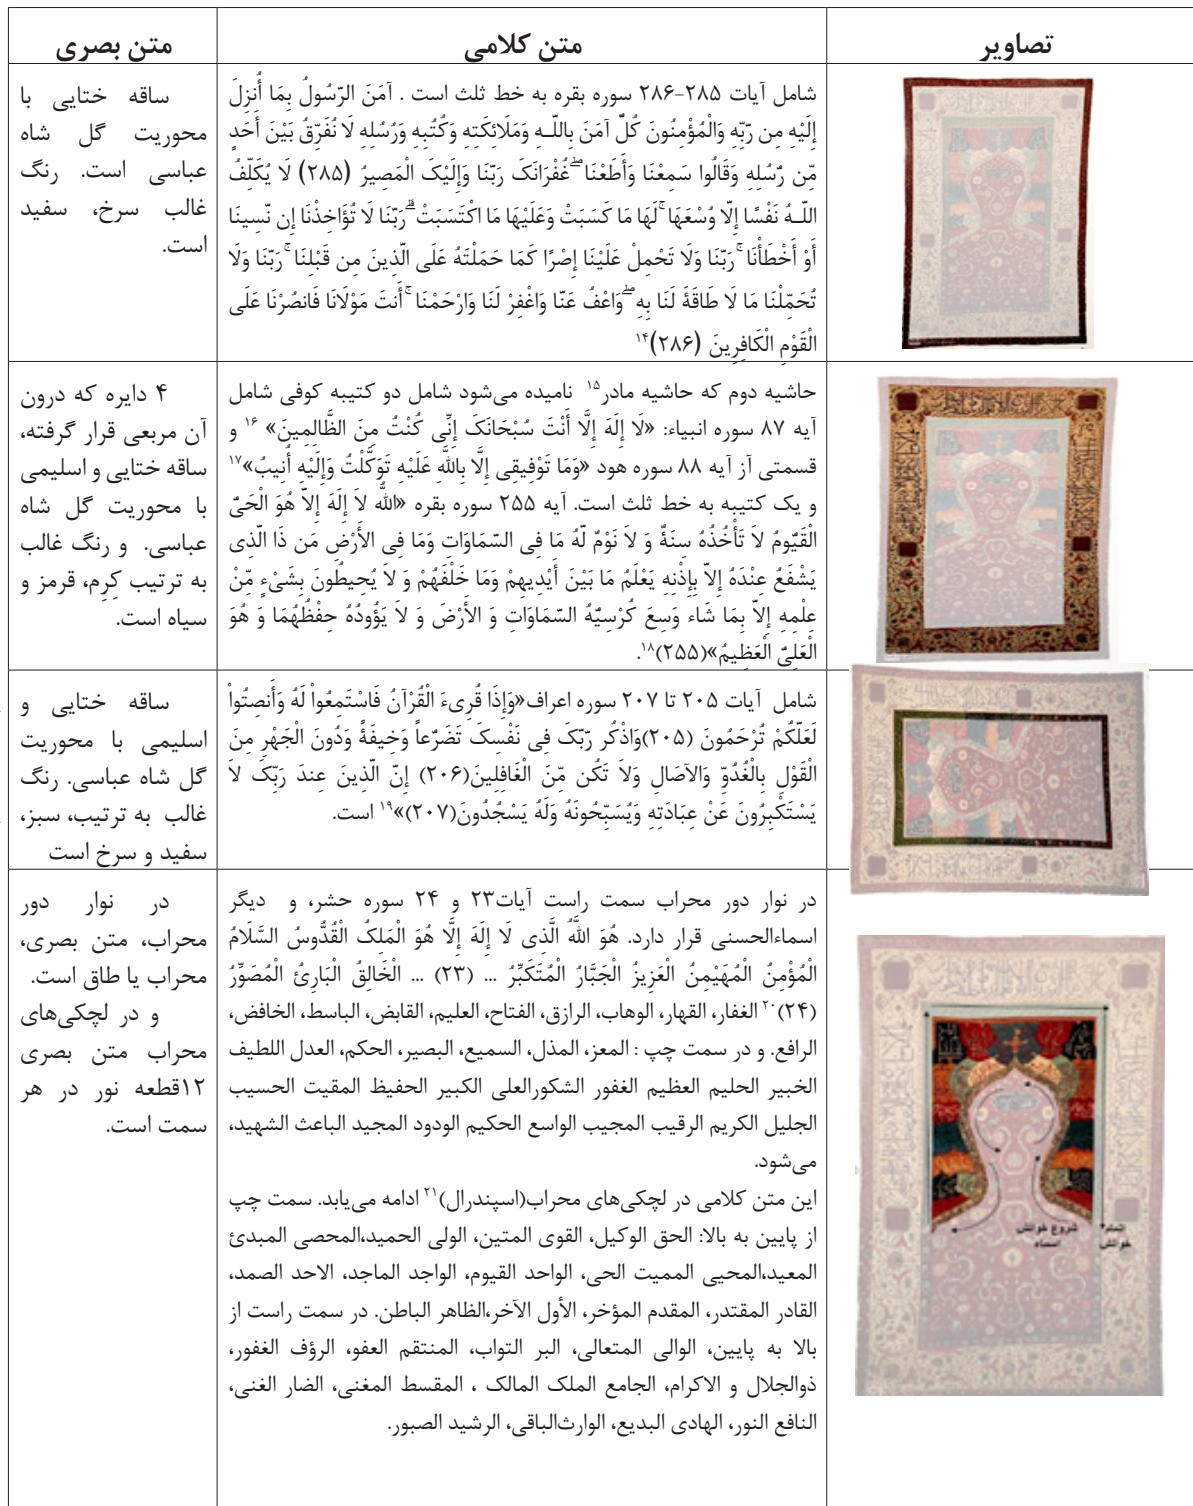 تصاویر
متن کلامی
متن بصری
شامل آیات ۲۸۵-۲۸۶ سوره بقره به خط ثلث است . آمَنَ الرّسُولُ بِمَا أُنزِلَ
إِلَیْهِ مِن رّبّهِ وَالْمُؤْمِنُونَ کُلّ آمَنَ بِاللّـهِ وَمَلَائِکَتِهِ وَکُتُبِهِ وَرُسُلِهِ لَا نُفَرّقُ بَیْنَ أَحَدٍ
مّن رّسُلِهِ وَقَالُوا سَمِعْنَا وَأَطَعْنَا ۖ غُفْرَانَکَ رَبّنَا وَإِلَیْکَ الْمَصِیرُ (۲۸۵) لَا یُکَلّفُ
اللّـهُ نَفْسًا إِلّا وُسْعَهَا ۚ لَهَا مَا کَسَبَتْ وَعَلَیْهَا مَا اکْتَسَبَتْ ۗ رَبّنَا لَا تُؤَاخِذْنَا إِن نّسِینَا
أَوْ أَخْطَأْنَا ۚ رَبّنَا وَلَا تَحْمِلْ عَلَیْنَا إِصْرًا کَمَا حَمَلْتَهُ عَلَی الّذِینَ مِن قَبْلِنَا ۚ رَبّنَا وَلَا
تُحَمّلْنَا مَا لَا طَاقَةَ لَنَا بِهِ ۖ وَاعْفُ عَنّا وَاغْفِرْ لَنَا وَارْحَمْنَا ۚ أَنتَ مَوْلَانَا فَانصُرْنَا عَلَی
الْقَوْمِ الْکَافِرِینَ (۲۸۶)۱۴
ساقه ختایی با
محوریت گل شاه
عباسی است. رنگ
غالب سرخ، سفید
است.
حاشیه دوم که حاشیه مادر۱۵ نامیده می‌شود شامل دو کتیبه کوفی شامل
آیه ۸۷ سوره انبیاء: «لَا إِلَهَ إِلَّا أَنْتَ سُبْحَانَکَ إِنِّی کُنْتُ مِنَ الظَّالِمِینَ» ۱۶ و
قسمتی آز آیه ۸۸ سوره هود «وَمَا تَوْفِیقِی إِلَّا بِاللَّهِ عَلَیْهِ تَوَکَّلْتُ وَإِلَیْهِ أُنِیبُ»۱۷
و یک کتیبه به خط ثلث است. آیه ۲۵۵ سوره بقره «اللّه لاَ إِلَهَ إِلاَّ هُوَ الْحَیّ
الْقَیّومُ لاَ تَأْخُذُهُ سِنَةٌ وَ لاَ نَوْمٌ لّهُ مَا فِی السّمَاوَاتِ وَمَا فِی الأَرْضِ مَن ذَا الّذِی
یَشْفَعُ عِنْدَهُ إِلاّ بِإِذْنِهِ یَعْلَمُ مَا بَیْنَ أَیْدِیهِمْ وَمَا خَلْفَهُمْ وَ لاَ یُحِیطُونَ بِشَیْءٍ مّنْ
عِلْمِهِ إِلاّ بِمَا شَاء وَسِعَ کُرْسِیّهُ السّمَاوَاتِ وَ الأَرْضَ وَ لاَ یَؤُودُهُ حِفْظُهُمَا وَ هُوَ
الْعَلِیّ الْعَظِیمُ»(۲۵۵)۱۸.
۴ دایره که درون
آن مربعی قرار گرفته،
ساقه ختایی و اسلیمی
با محوریت گل شاه
عباسی. و رنگ غالب
به ترتیب کِرِم، قرمز و
سیاه است.
شامل آیات ۲۰۵ تا ۲۰۷ سوره اعراف«وَإِذَا قُرِیءَ الْقُرْآنُ فَاسْتَمِعُواْ لَهُ وَأَنصِتُواْ
لَعَلّکُمْ تُرْحَمُونَ (۲۰۵)وَاذْکُر رّبّکَ فِی نَفْسِکَ تَضَرّعاً وَخِیفَةً وَدُونَ الْجَهْرِ مِنَ
الْقَوْلِ بِالْغُدُوّ وَالآصَالِ وَلاَ تَکُن مّنَ الْغَافِلِینَ(۲۰۶) إِنّ الّذِینَ عِندَ رَبّکَ لاَ
یَسْتَکْبِرُونَ عَنْ عِبَادَتِهِ وَیُسَبّحُونَهُ وَلَهُ یَسْجُدُونَ(۲۰۷)»۱۹ است.
ساقه ختایی و
اسلیمی با محوریت
گل شاه عباسی. رنگ
غالب به ترتیب، سبز،
سفید و سرخ است
در نوار دور محراب سمت راست آیات۲۳ و ۲۴ سوره حشر، و دیگر
اسماءالحسنی قرار دارد. هُوَ اللَّهُ الَّذِی لَا إِلَهَ إِلَّا هُوَ الْمَلِکُ الْقُدُّوسُ السَّلَامُ
الْمُؤْمِنُ الْمُهَیْمِنُ الْعَزِیزُ الْجَبَّارُ الْمُتَکَبِّرُ ... (۲۳) ... الْخَالِقُ الْبَارِئُ الْمُصَوِّرُ
(۲۴)۲۰ الغفار، القهار، الوهاب، الرازق، الفتاح، العلیم، القابض، الباسط، الخافض،
الرافع. و در سمت چپ : المعز، المذل، السمیع، البصیر، الحکم، العدل اللطیف
الخبیر الحلیم العظیم الغفور الشکورالعلی الکبیر الحفیظ المقیت الحسیب
الجلیل الکریم الرقیب المجیب الواسع الحکیم الودود المجید الباعث الشهید،
می‌شود.
این متن کلامی در لچکی‌های محراب(اسپندرال)۲۱ ادامه می‌یابد. سمت چپ
از پایین به بالا: الحق الوکیل، القوی المتین، الولی الحمید،المحصی المبدئ
المعید،المحیی الممیت الحی، الواحد القیوم، الواجد الماجد، الاحد الصمد،
القادر المقتدر، المقدم المؤخر، الأول الآخر،الظاهر الباطن. در سمت راست از
بالا به پایین، الوالی المتعالی، البر التواب، المنتقم العفو، الرؤف الغفور،
ذوالجلال و الاکرام، الجامع الملک المالک ، المقسط المغنی، الضار الغنی،
النافع النور، الهادی البدیع، الوارث‌الباقی، الرشید الصبور.
در نوار دور
محراب، متن بصری،
محراب یا طاق است.
و در لچکی‌های
محراب متن بصری
۱۲قطعه نور در هر
سمت است.
شروع خوانش
اسماء
اتمام
خوانش